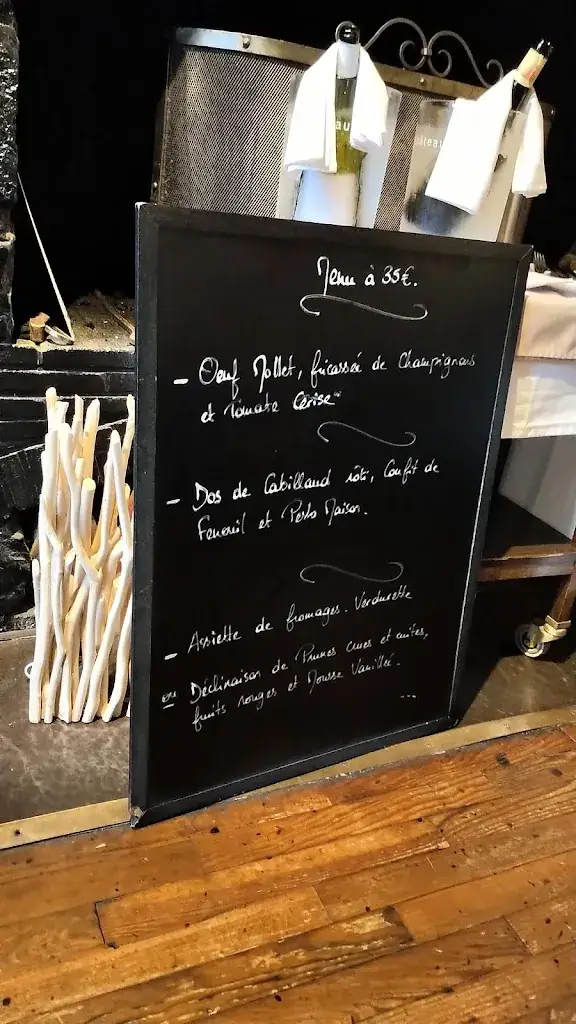 Menu à 35€.
- Oeuf Mollet, fricassée de Champignons
et Tomate Cerise
- Dos de Cabillaud rôti, Confit de
Fenouil et Pesto Maison.
- Assiette de fromages. Verdurette
ou Déclinaison de Prunes crues et cuites,
fruits rouges et Mousse Vanillée.
...